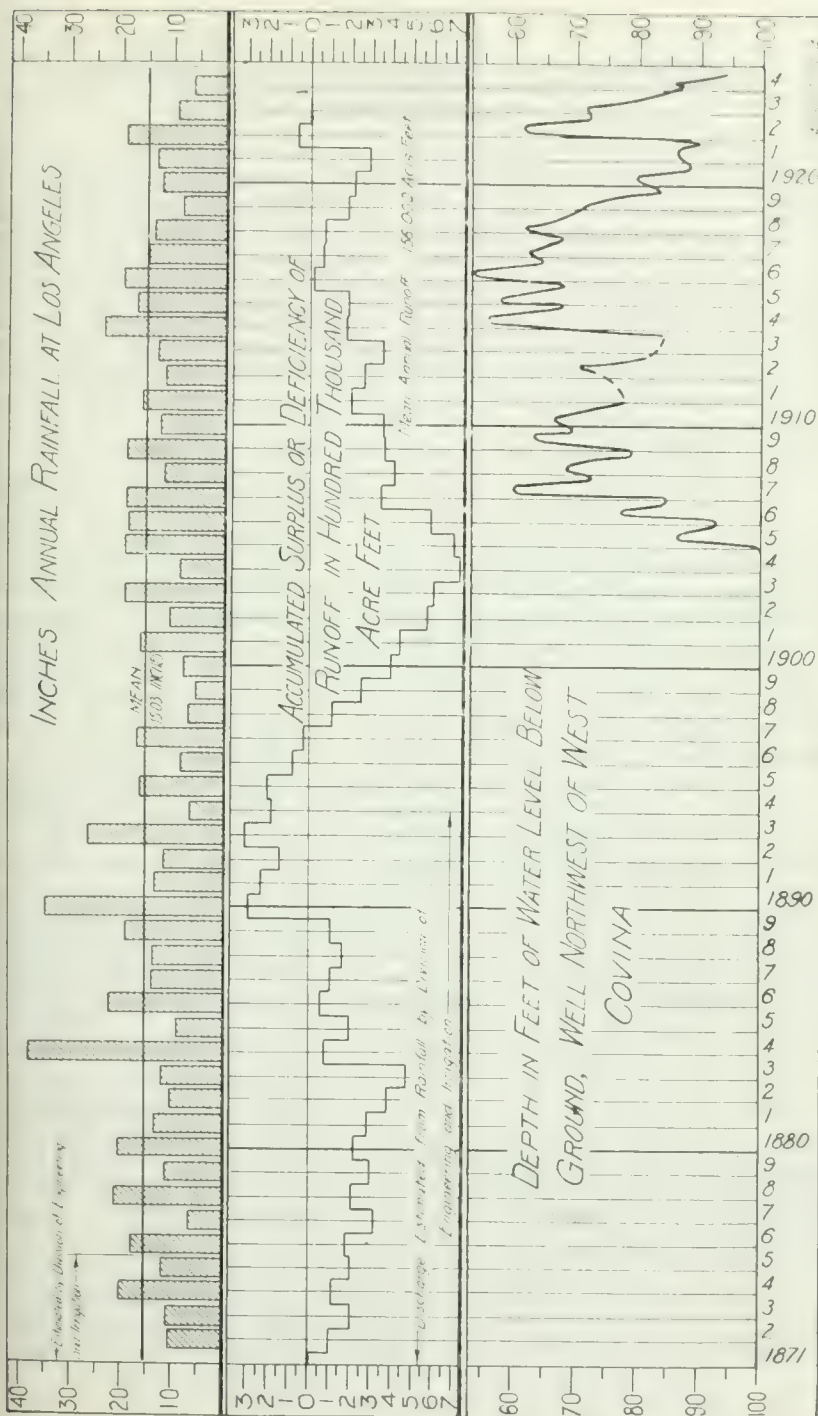 INCHES ANNUAL RAINFALL AT LOS ANGELES
40
30
20
10
MEAN
15.03 INCHES
Estimated by Division of Engineering
and Irrigation
40
30
20
10
3
2
1
0
1
2
3
4
5
6
7
ACCUMULATED SURPLUS OR DEFICIENCY OF
RUNOFF IN HUNDRED THOUSAND
ACRE FEET
Mean Annual Runoff Acre Feet
Discharge Estimated from Rainfall by Division of
Engineering and Irrigation
3
2
1
0
1
2
3
4
5
6
7
60
70
80
90
100
DEPTH IN FEET OF WATER LEVEL BELOW
GROUND, WELL NORTHWEST OF WEST
COVINA
60
70
80
90
100
1871
2
3
4
5
6
7
8
9
1880
1
2
3
4
5
6
7
8
9
1890
1
2
3
4
5
6
7
8
9
1900
1
2
3
4
5
6
7
8
9
1910
1
2
3
4
5
6
7
8
9
1920
1
2
3
4